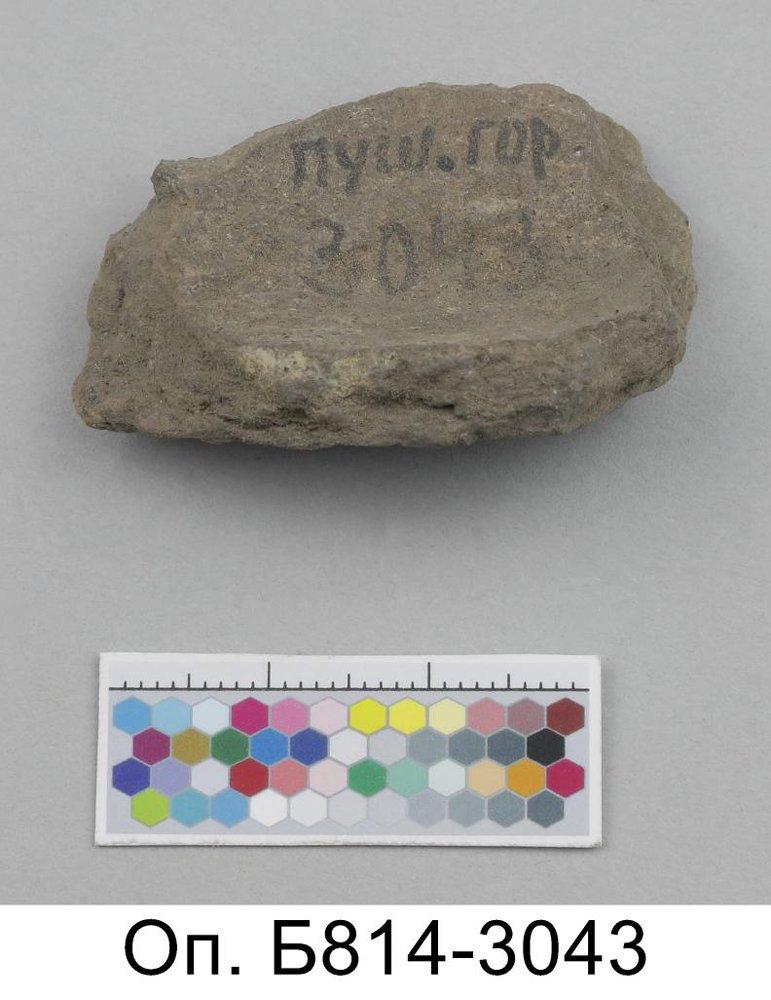 пуш. гор
3043
Оп. Б814-3043